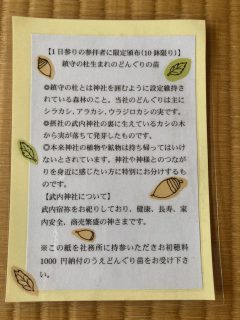 【1日参りの参拝者に限定頒布(10鉢限り)】
鎮守の杜生まれのどんぐりの苗
◎鎮守の杜とは神社を囲むように設定維持さ
れている森林のこと。当社のどんぐりは主に
シラカシ、アラカシ、ウラジロガシの実です。
◎摂社の武内神社の裏に生えているカシの木
から実が落ちて発芽したものです。
◎本来神社の植物や鉱物は持ち帰ってはいけ
ないとされています。神社や神様とのつながり
を身近に感じたい方に特別にお分けするもの
です。
【武内神社について】
武内宿祢をお祀りしており、健康、長寿、家
内安全、商売繁盛の神さまです。
※この紙を社務所に持参いただきお初穂料
1000円納付のうえどんぐり苗をお受け下さ
い。